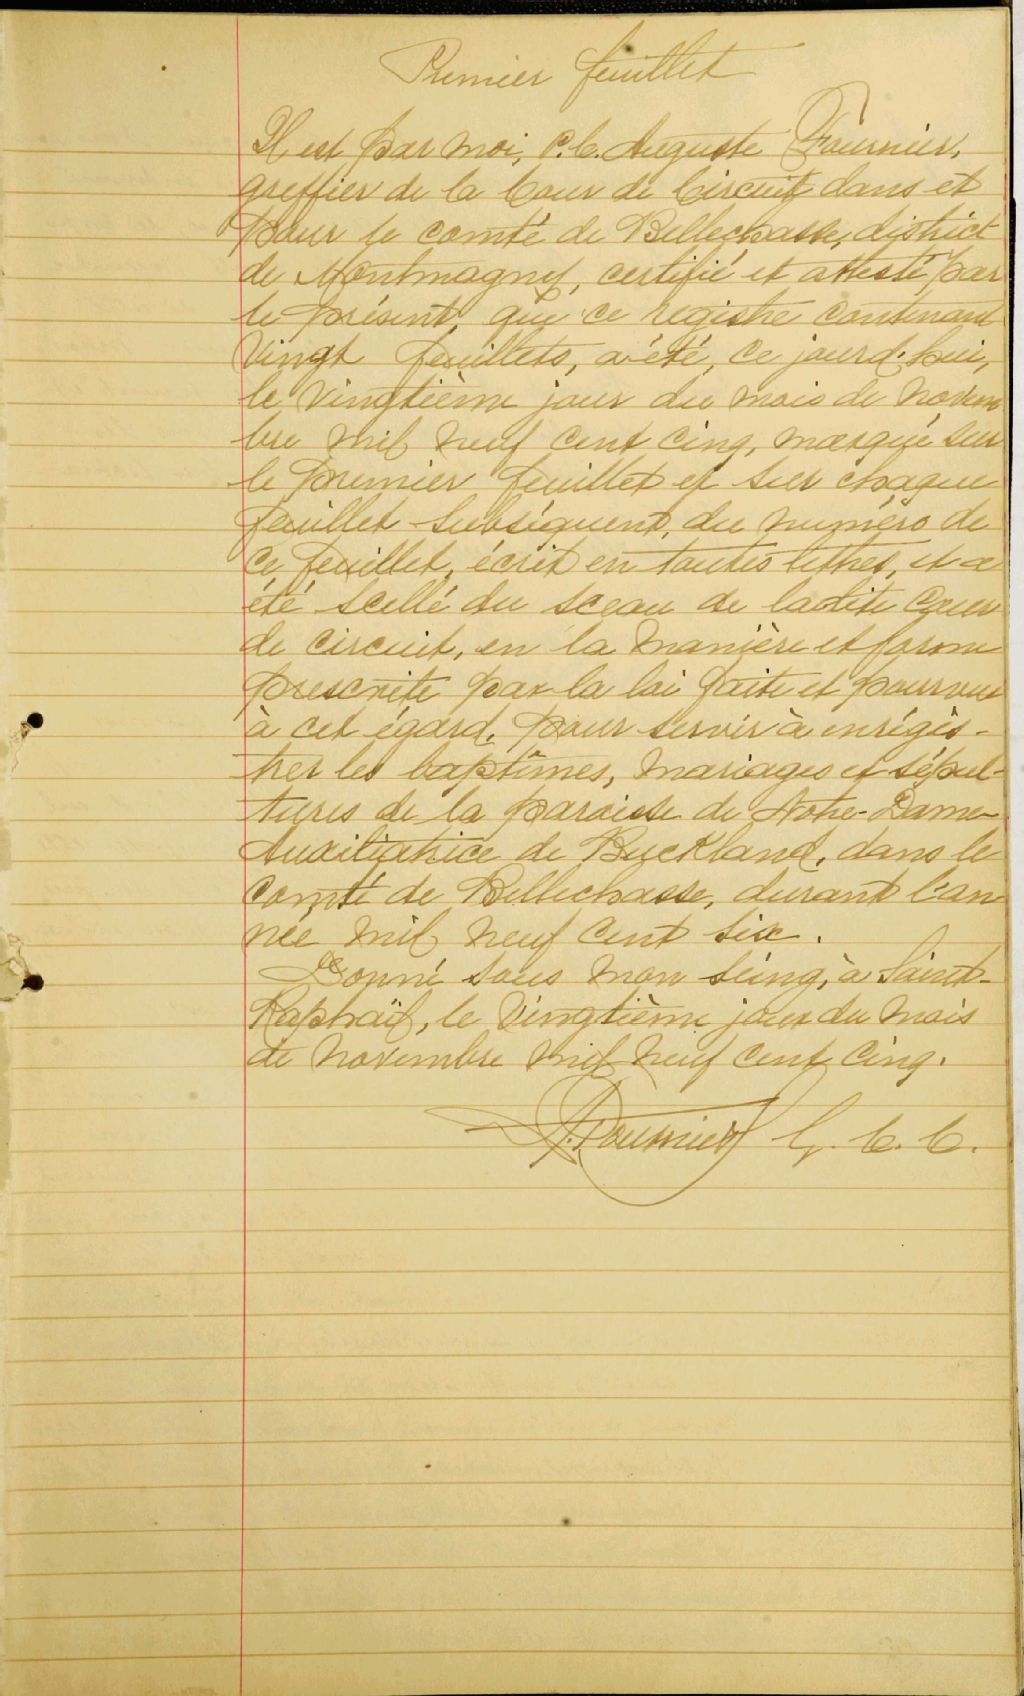 Premier feuillet
Il est par moi, C. C. Auguste Fournier,
greffier de la Cour de Circuit dans et
pour le comté de Bellechasse, district
de Montmagny, certifié et attesté par
le présent, que ce registre contenant
vingt feuillets, a été, ce jourd'hui,
le vingtième jour du mois de novem
bre mil neuf cent cinq, marqué sur
le premier feuillet et sur chaque
feuillet subséquent, du numéro de
ce feuillet, écrit en toutes lettres, et a
été scellé du sceau de ladite Cour
de circuit, en la manière et forme
prescrite par la loi faite et pourvue
à cet égard, pour servir à enrégis-
trer les baptêmes, mariages et sépul-
tures de la paroisse de Notre-Dame-
Auxiliatrice de Buckland, dans le
comté de Bellechasse, durant l'an
née mil neuf cent six.
Donné sous mon seing, à Saint-
Raphaël, le vingtième jour du mois
de novembre mil neuf cent cinq.
A. Fournier G. C. C.